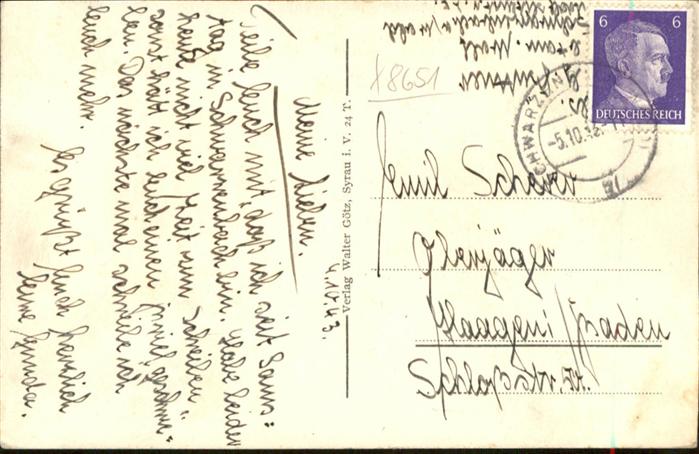 4.10.43.
Meine Lieben.
Teile Euch mit, daß ich seit Sams-
tag in Schwarzenbach bin. Habe leider
heute nicht viel Zeit zum Schreiben
sonst hätt ich Euch einen Brief geschrie-
ben. Das nächste mal schreibe ich
Euch mehr.
Es grüßt Euch herzlich
Verlag Walter Götz, Syrau i. V. 24 T.
X8651
6 6
DEUTSCHES REICH
SCHWARZENB
-5.10.43.-
Emil Scherer
Oberjäger
Haagen i/Baden
Schloßstr.